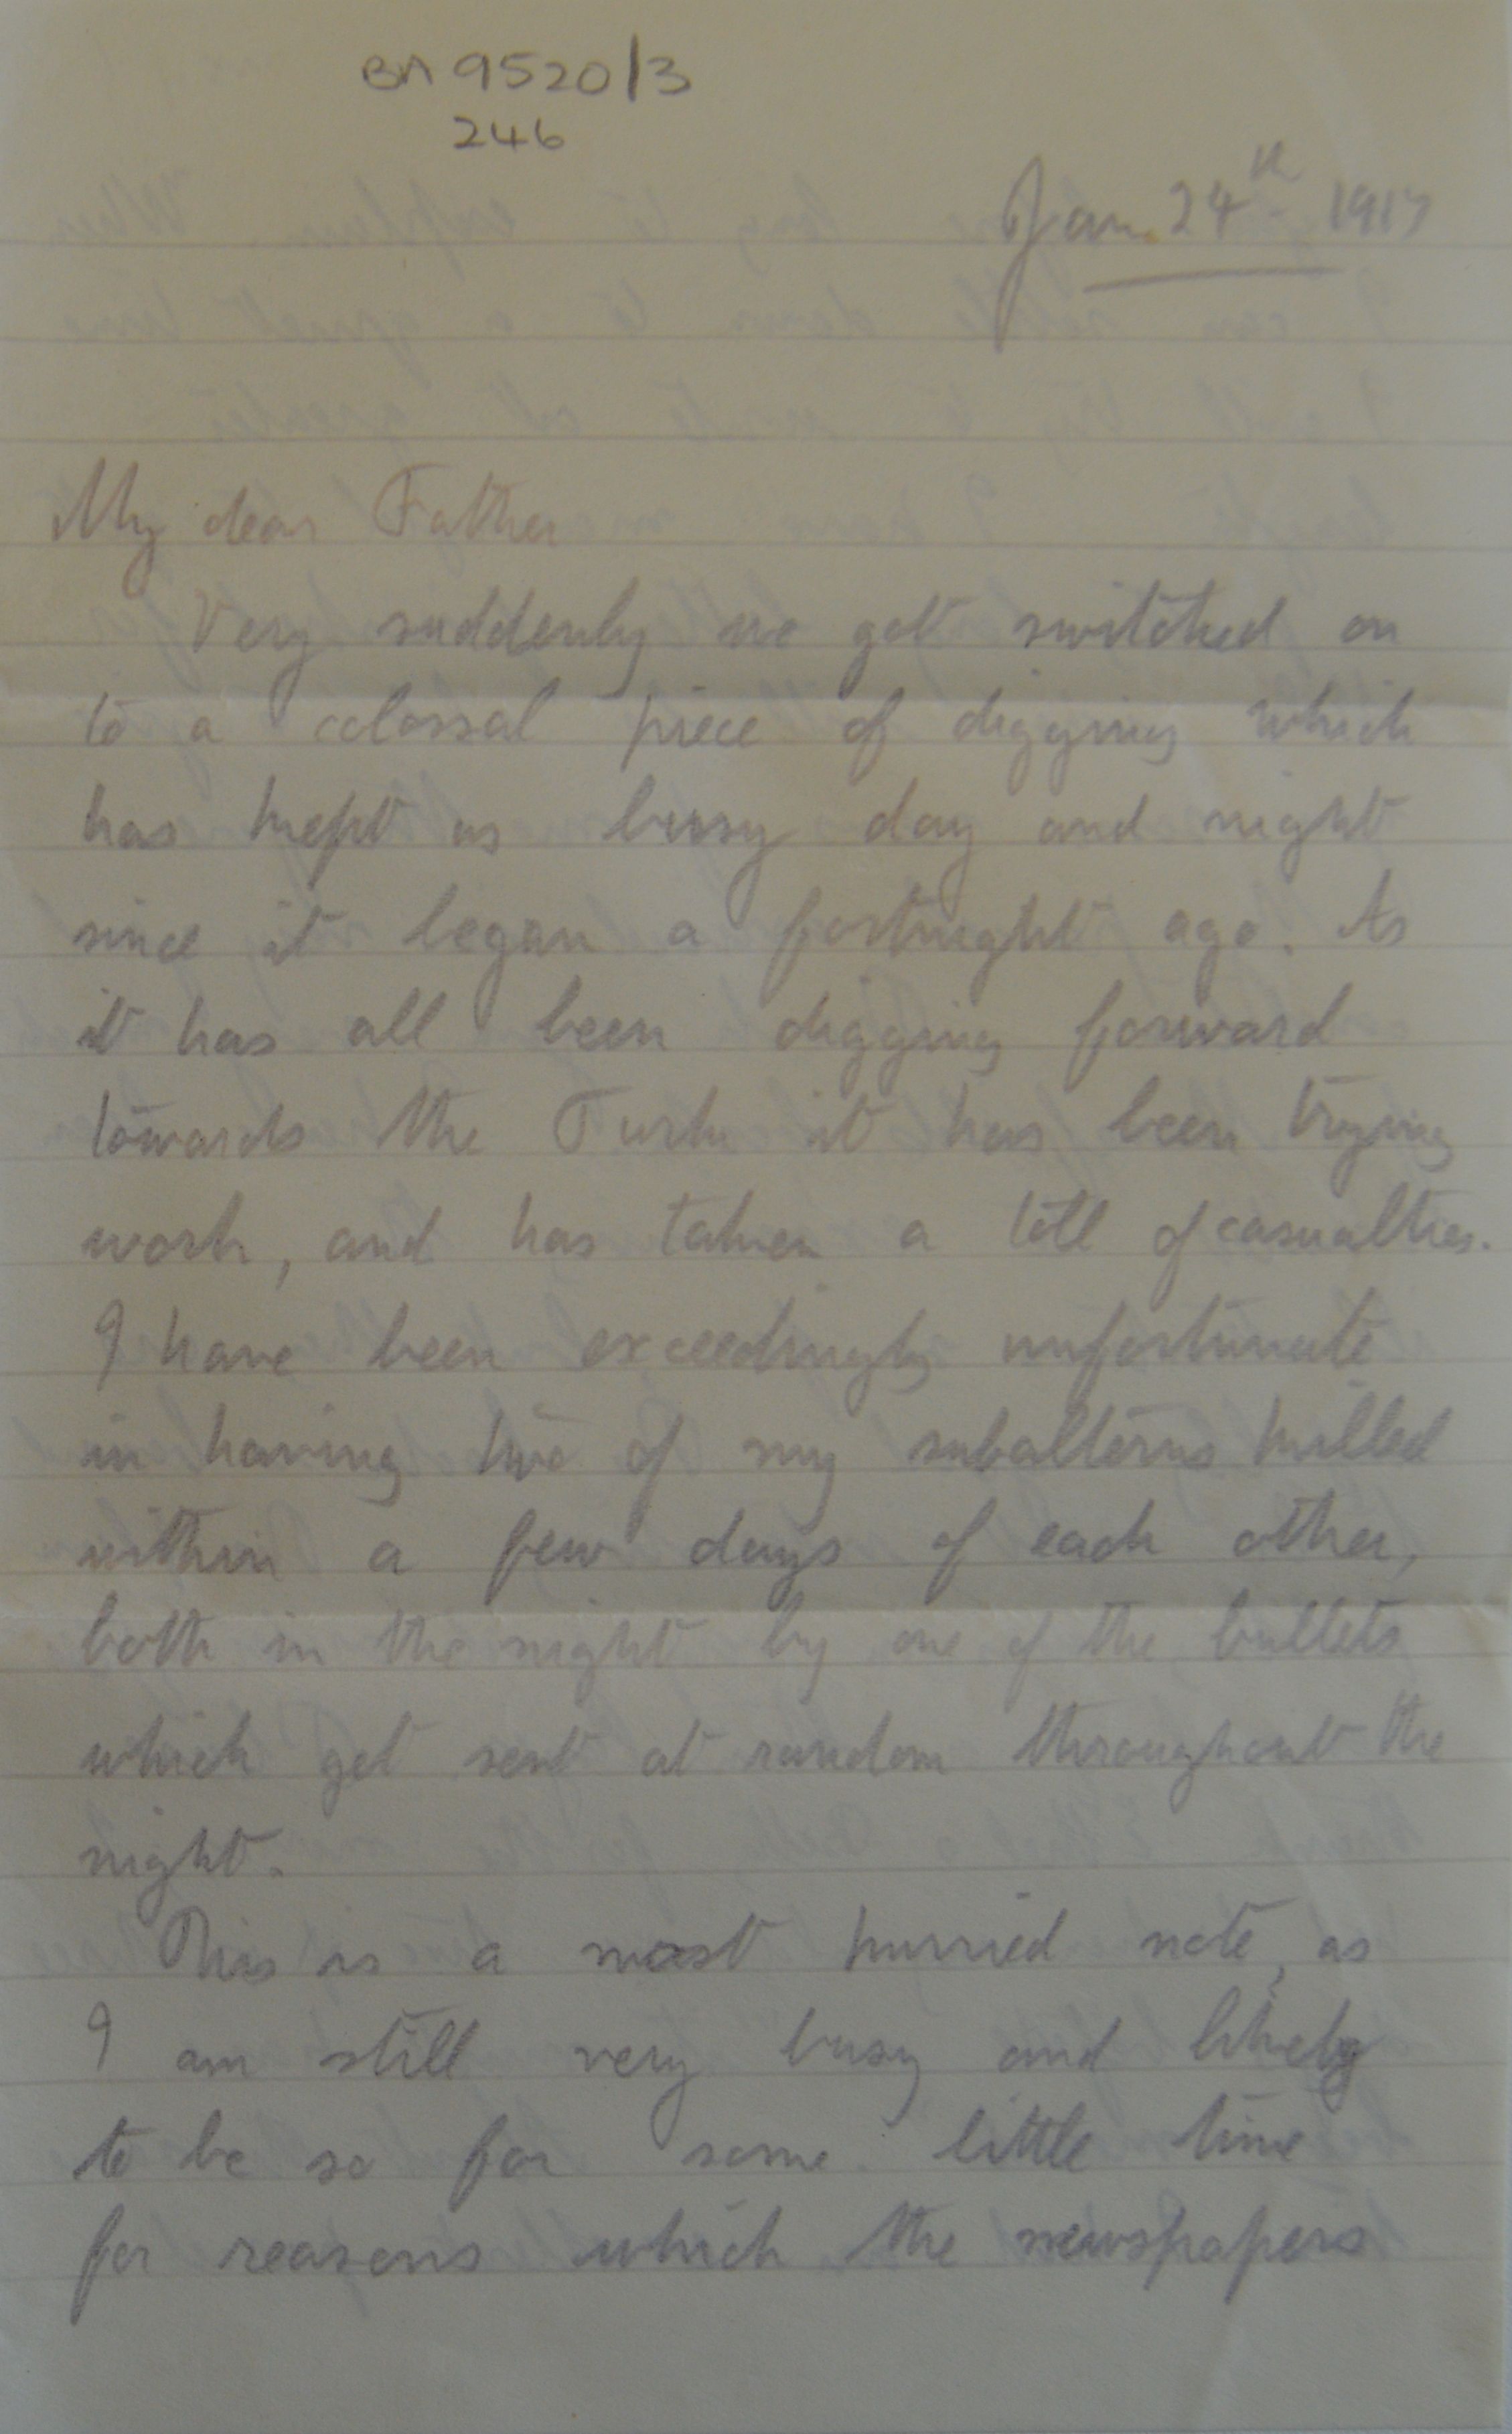 BA 9520/3
246
Jan. 24th 1917
My dear Father
Very suddenly we got switched on
to a colossal piece of digging which
has kept us busy day and night
since it began a fortnight ago. As
it has all been digging forward
towards the Turk it has been trying
work, and has taken a toll of casualties.
I have been exceedingly unfortunate
in having two of my subalterns killed
within a few days of each other,
both in the night by one of the bullets
which get sent at random throughout the
night.
This is a most hurried note, as
I am still very busy and likely
to be so for some little time
for reasons which the newspapers